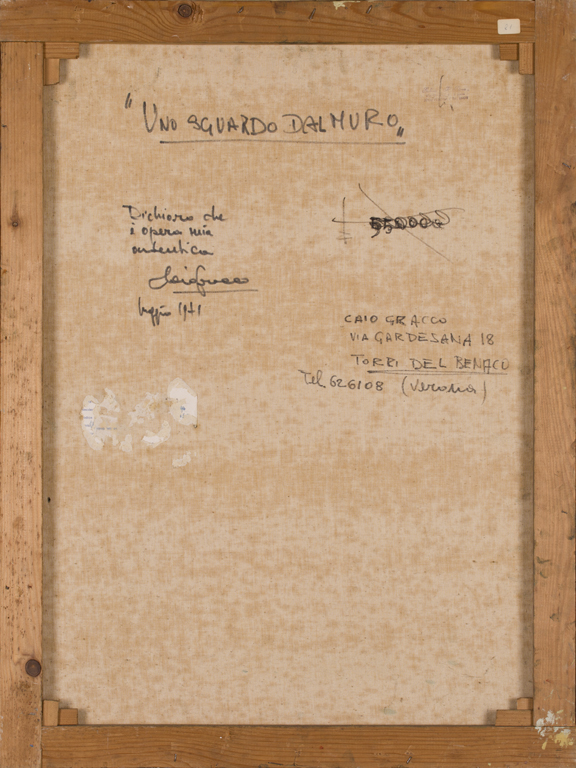 "UNO SGUARDO DAL MURO"
Dichiaro che
è opera mia
autentica
Caio Gracco
1971
CAIO GRACCO
VIA GARDESANA 18
TORRI DEL BENACO
Tel. 626108 (Verona)